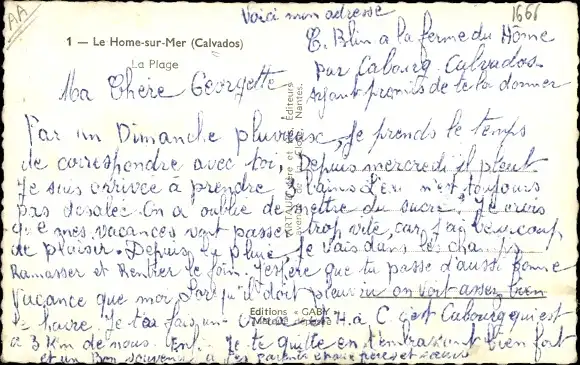 AA
Voici mon adresse
1666
1 — Le Home-sur-Mer (Calvados)
La Plage
E. Blin a la ferme du Home
par Cabourg Calvados.
Ayant promis de te la donner
Ma Chère Georgette
Par un Dimanche pluvieux, Je prends le temps
de correspondre avec toi, Depuis mercredi il pleut
Je suis arrivée à prendre bains L'eau n'est toujours
pas desalée. On a oublié de mettre du sucre! Je crois
que mes vacances vont passer trop vite, car j'ai beaucoup
de plaisir. Depuis la pluie, je vais dans les champs
Ramasser et Rentrer le foin. J'espère que tu passe d'aussi bonne
vacance que moi. Lorsqu'il doit pleuvoir on voit assez bien
le havre. Je t'ai fais un H. à C c'est Cabourg qui est
à 3 Km de nous. Je te quitte en t'embrassant bien fort
et un Bon souvenir a tes parents
Editions « GABY »
ARTAUD Père et Fils, Editeurs
Nantes.